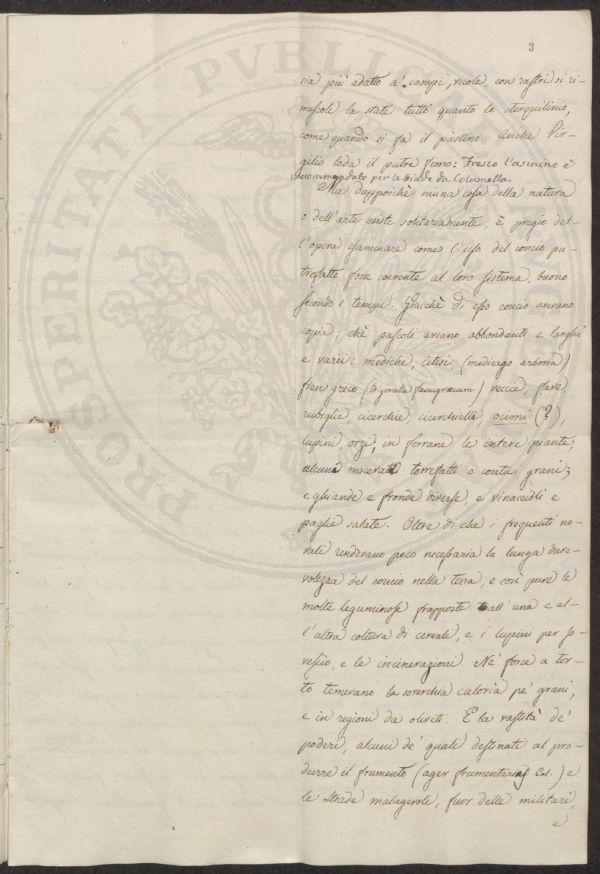 3
sia piu' adatto a' campi, vuole, con rastri si ri-
mescoli la state tutto quanto lo sterquilinio,
come quando si fa il pastino. Anche Vir-
gilio loda il putre fimo: Fresco l'asinino è
raccomandato per le biade da Columella
Ma dappoichè niuna cosa della natura
o dell'arte esiste solitariamente, è pregio del-
l'opera esaminare come l'uso del concio pu-
trefatto fosse coerente al loro sistema, buono
secondo i tempi. Giacchè di esso concio avevano
copia; chè pascoli aveano abbondanti e larghi
e varii: mediche, citisi, (medicago arborea)
fien greco (trigonella fænugræcum) veccie, fave,
rubiglie, cicerchie, cicerchielle, ocimi (?),
lupini, orzi, in ferrane le intere piante;
alcuna macerate torrefatte o contusi grani;
e ghiande e fronde diverse e vinacciòli e
paglie salate. Oltre di che i frequenti no-
vali rendevano poco necessaria la lunga dure-
volezza del concio nella terra, e così pure le
molte leguminose frapposte dall'una e al-
l'altra coltura di cereali, e i lupini per so-
vescio, e le incinerazioni. Nè forse a tor-
to temevano la soverchia caloria pe' grani,
e in regioni da oliveti. E la vastità de'
poderi, alcuni de' quali destinati al pro-
durre il frumento (ager frumentarius Col.) e
le strade malagevoli, fuor delle militari,
PROSPERITATI PVBLIC